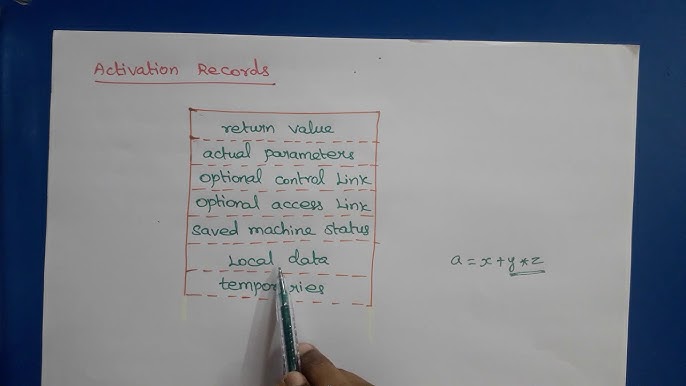 Activation Records
return value
actual parameters
optional control Link
optional access Link
saved machine status
Local data
a = x + y * z
temporaries